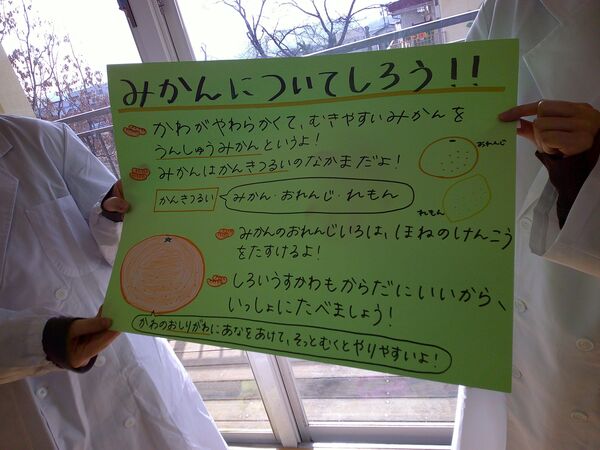 みかんについてしろう!!
かわがやわらかくて、むきやすいみかんを
うんしゅうみかんというよ!
みかんはかんきつるいのなかまだよ!
おれんじ
かんきつるい
みかん・おれんじ・れもん
れもん
みかんのおれんじいろは、ほねのけんこう
をたすけるよ!
しろいうすかわもからだにいいから、
いっしょにたべましょう!
かわのおしりがわにあなをあけて、そっとむくとやりやすいよ!